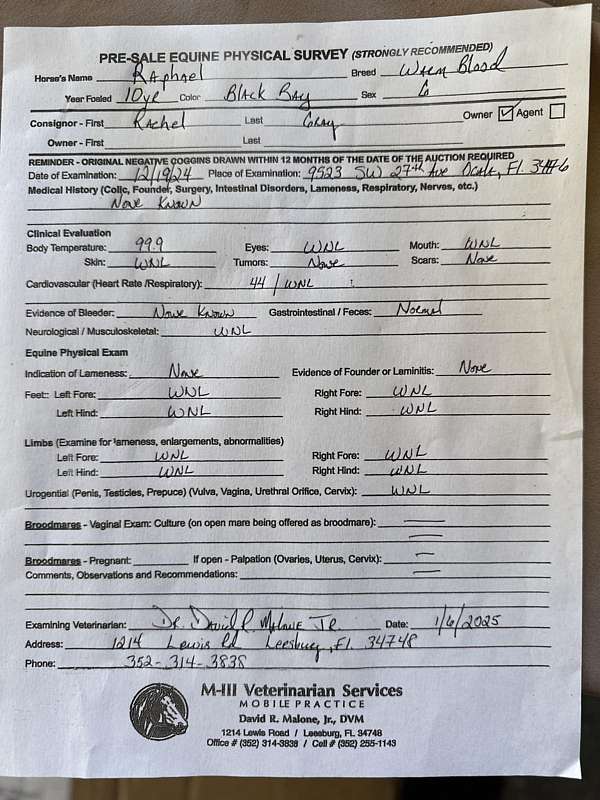 PRE-SALE EQUINE PHYSICAL SURVEY (STRONGLY RECOMMENDED)
Horse's Name Raphael Breed Warm Blood
Year Foaled 10yr Color Black Bay Sex G
Consignor - First Rachel Last Gray Owner ✓ Agent
Owner - First Last
REMINDER - ORIGINAL NEGATIVE COGGINS DRAWN WITHIN 12 MONTHS OF THE DATE OF THE AUCTION REQUIRED
Date of Examination: 12/19/24 Place of Examination: 9523 SW 27th Ave Ocala, Fl 34476
Medical History (Colic, Founder, Surgery, Intestinal Disorders, Lameness, Respiratory, Nerves, etc.)
None Known
Clinical Evaluation
Body Temperature: 99.9 Eyes: WNL Mouth: WNL
Skin: WNL Tumors: None Scars: None
Cardiovascular (Heart Rate /Respiratory): 44 / WNL
Evidence of Bleeder: None Known Gastrointestinal / Feces: Normal
Neurological / Musculoskeletal: WNL
Equine Physical Exam
Indication of Lameness: None Evidence of Founder or Laminitis: None
Feet: Left Fore: WNL Right Fore: WNL
Left Hind: WNL Right Hind: WNL
Limbs (Examine for lameness, enlargements, abnormalities)
Left Fore: WNL Right Fore: WNL
Left Hind: WNL Right Hind: WNL
Urogential (Penis, Testicles, Prepuce) (Vulva, Vagina, Urethral Orifice, Cervix): WNL
Broodmares - Vaginal Exam: Culture (on open mare being offered as broodmare): —
Broodmares - Pregnant: If open - Palpation (Ovaries, Uterus, Cervix): —
Comments, Observations and Recommendations: —
Examining Veterinarian: Dr. David R Malone Jr Date: 1/6/2025
Address: 1214 Lewis Rd Leesburg, Fl 34748
Phone: 352-314-3838
M-III Veterinarian Services
MOBILE PRACTICE
David R. Malone, Jr., DVM
1214 Lewis Road / Leesburg, FL 34748
Office # (352) 314-3838 / Cell # (352) 255-1143